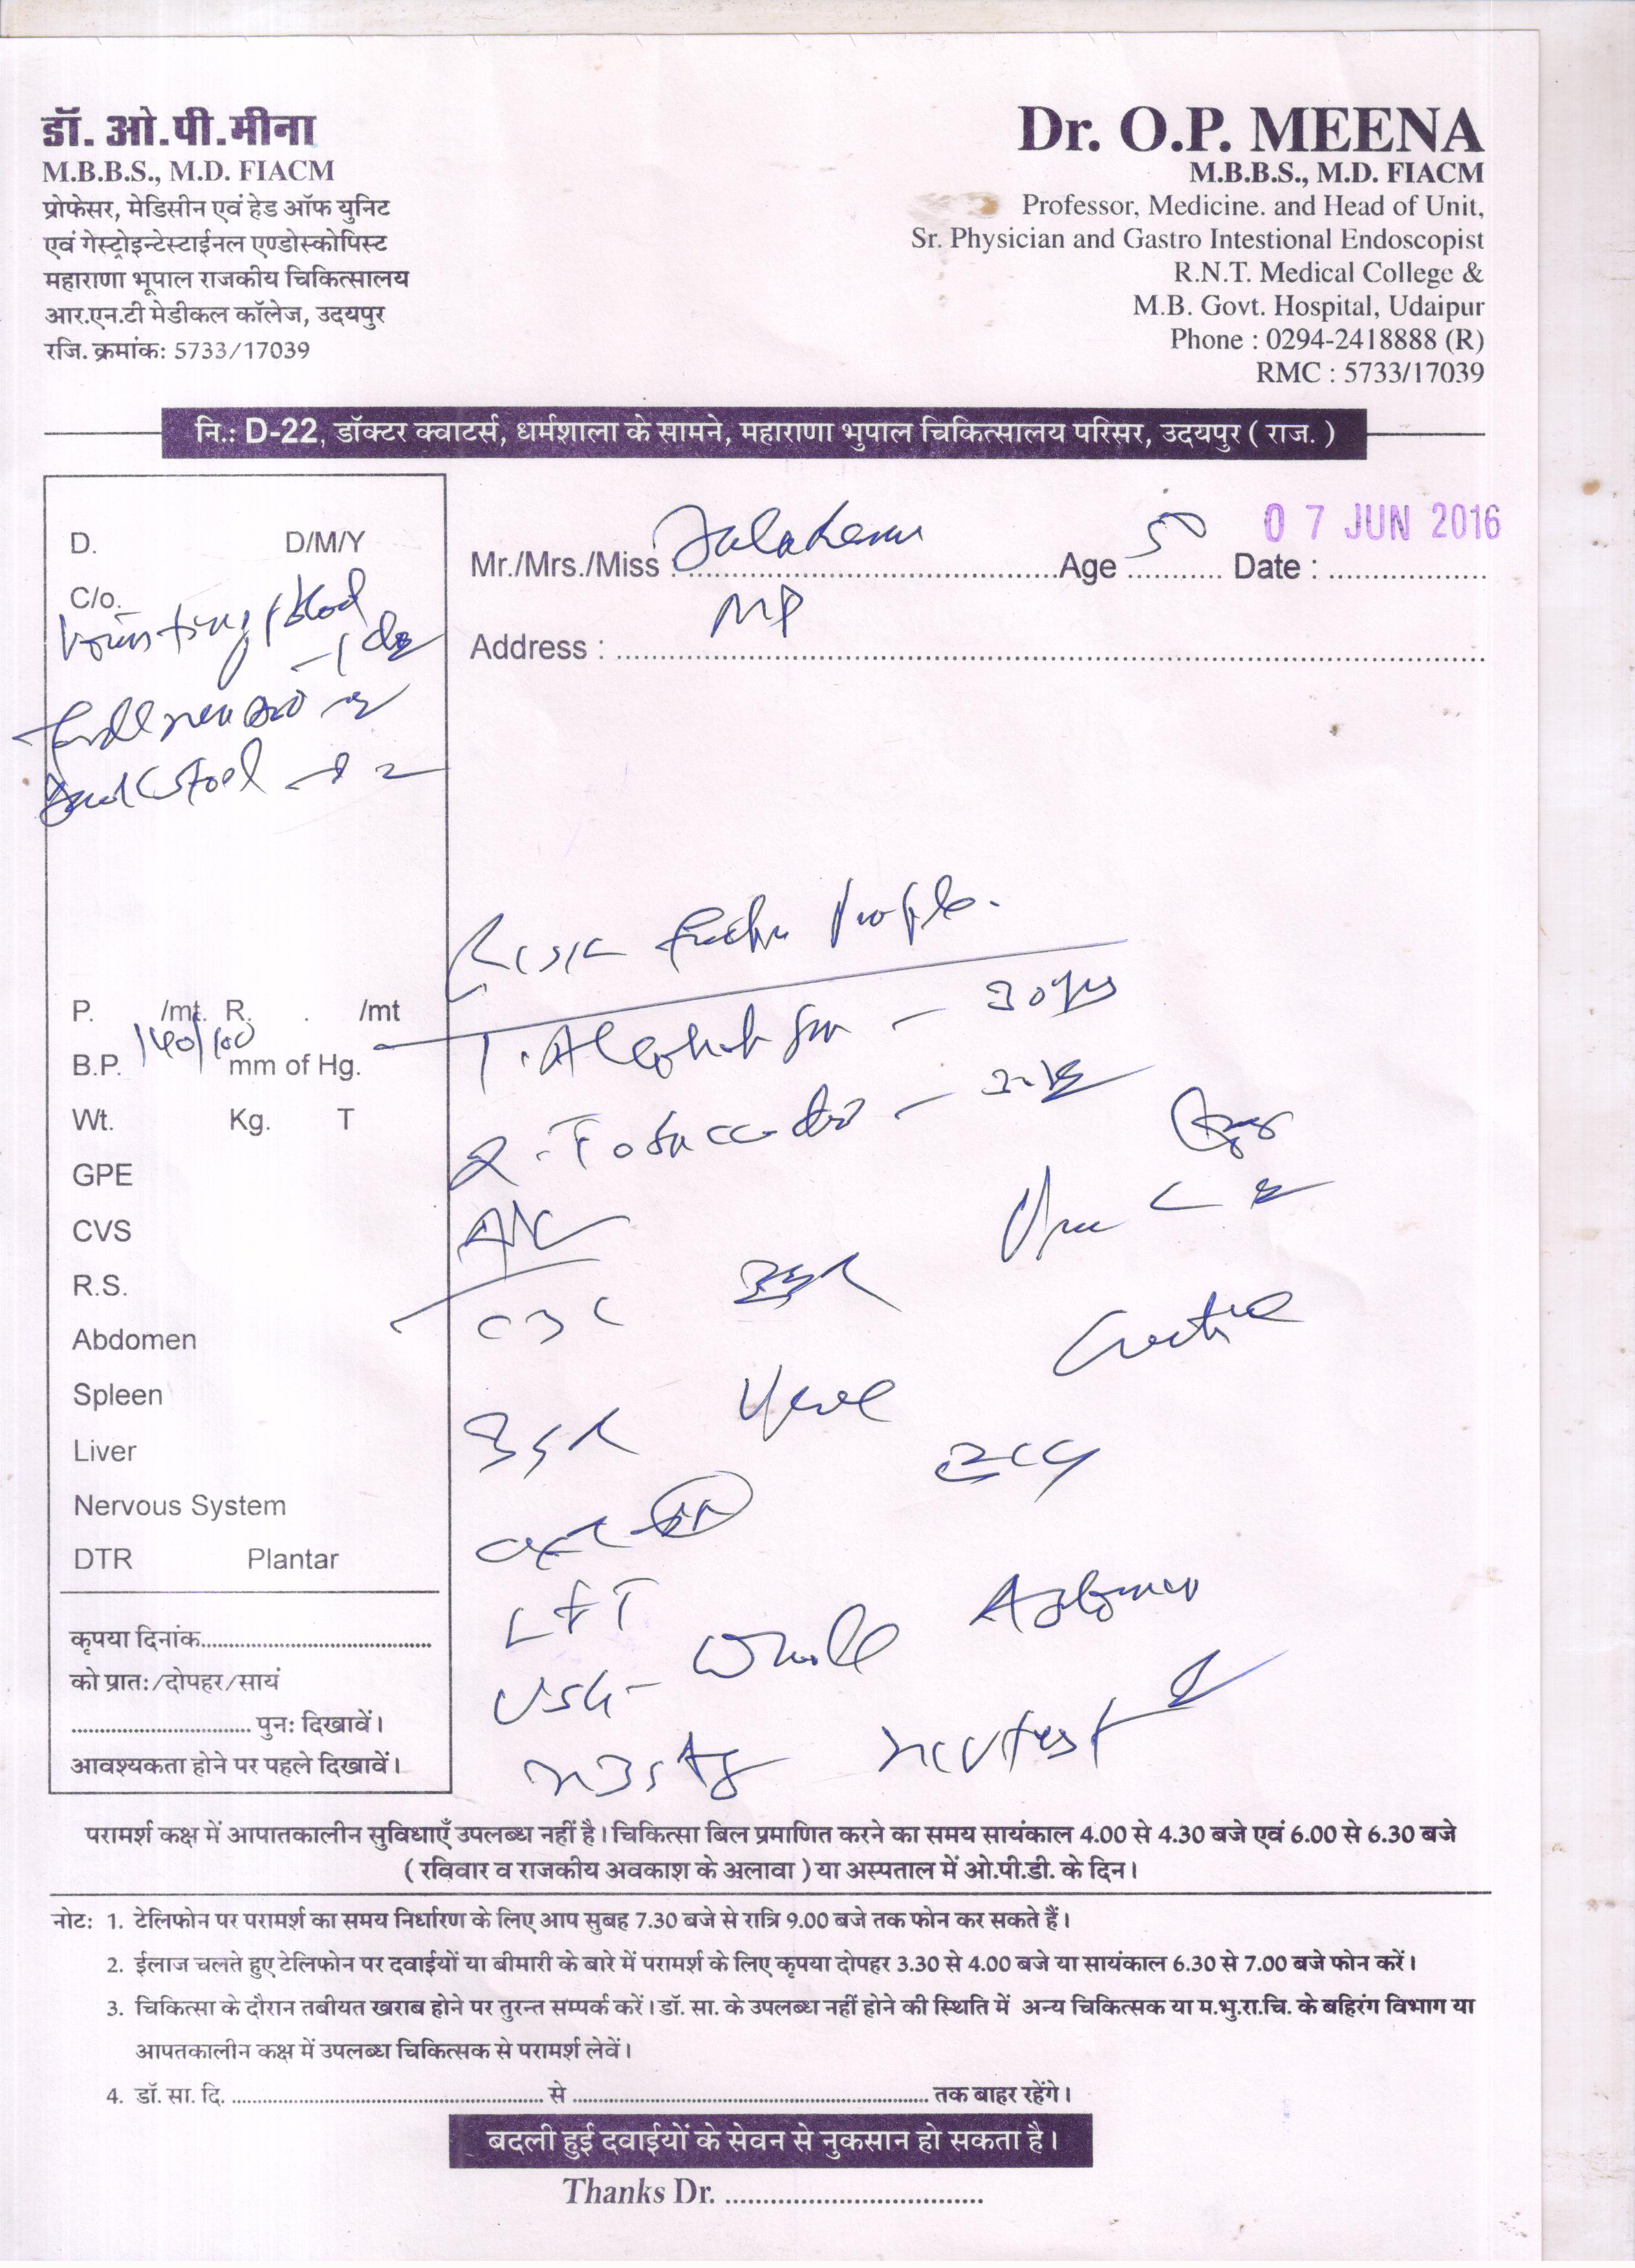 डॉ. ओ.पी.मीना
M.B.B.S., M.D. FIACM
प्रोफेसर, मेडिसीन एवं हेड ऑफ युनिट
एवं गेस्ट्रोइन्टेस्टाईनल एण्डोस्कोपिस्ट
महाराणा भूपाल राजकीय चिकित्सालय
आर.एन.टी मेडीकल कॉलेज, उदयपुर
रजि. क्रमांक: 5733/17039
Dr. O.P. MEENA
M.B.B.S., M.D. FIACM
Professor, Medicine. and Head of Unit,
Sr. Physician and Gastro Intestional Endoscopist
R.N.T. Medical College &
M.B. Govt. Hospital, Udaipur
Phone : 0294-2418888 (R)
RMC : 5733/17039
नि.: D-22, डॉक्टर क्वाटर्स, धर्मशाला के सामने, महाराणा भुपाल चिकित्सालय परिसर, उदयपुर ( राज. )
D. D/M/Y
C/o.
Vomiting / blood
stool
Mr./Mrs./Miss : Age 50 Date : 07 JUN 2016
Address : MP
P. /mt. R. . /mt
B.P. 140/100 mm of Hg.
Wt. Kg. T
GPE
CVS
R.S.
Abdomen
Spleen
Liver
Nervous System
DTR Plantar
कृपया दिनांक
को प्रात:/दोपहर/सायं
पुन: दिखावें।
आवश्यकता होने पर पहले दिखावें।
Risk factor Profile.
1. Alcohol - 30 yrs
2. Tobacco
CBC ESR
Urine
BSR Urea Creatine
ECG
LFT
USG - Whole Abdomen
HBsAg HCV test
परामर्श कक्ष में आपातकालीन सुविधाएँ उपलब्ध नहीं है। चिकित्सा बिल प्रमाणित करने का समय सायंकाल 4.00 से 4.30 बजे एवं 6.00 से 6.30 बजे
( रविवार व राजकीय अवकाश के अलावा ) या अस्पताल में ओ.पी.डी. के दिन।
नोट: 1. टेलिफोन पर परामर्श का समय निर्धारण के लिए आप सुबह 7.30 बजे से रात्रि 9.00 बजे तक फोन कर सकते हैं।
2. ईलाज चलते हुए टेलिफोन पर दवाईयों या बीमारी के बारे में परामर्श के लिए कृपया दोपहर 3.30 से 4.00 बजे या सायंकाल 6.30 से 7.00 बजे फोन करें।
3. चिकित्सा के दौरान तबीयत खराब होने पर तुरन्त सम्पर्क करें। डॉ. सा. के उपलब्ध नहीं होने की स्थिति में अन्य चिकित्सक या म.भु.रा.चि. के बहिरंग विभाग या
आपतकालीन कक्ष में उपलब्ध चिकित्सक से परामर्श लेवें।
4. डॉ. सा. दि. से तक बाहर रहेंगे।
बदली हुई दवाईयों के सेवन से नुकसान हो सकता है।
Thanks Dr.